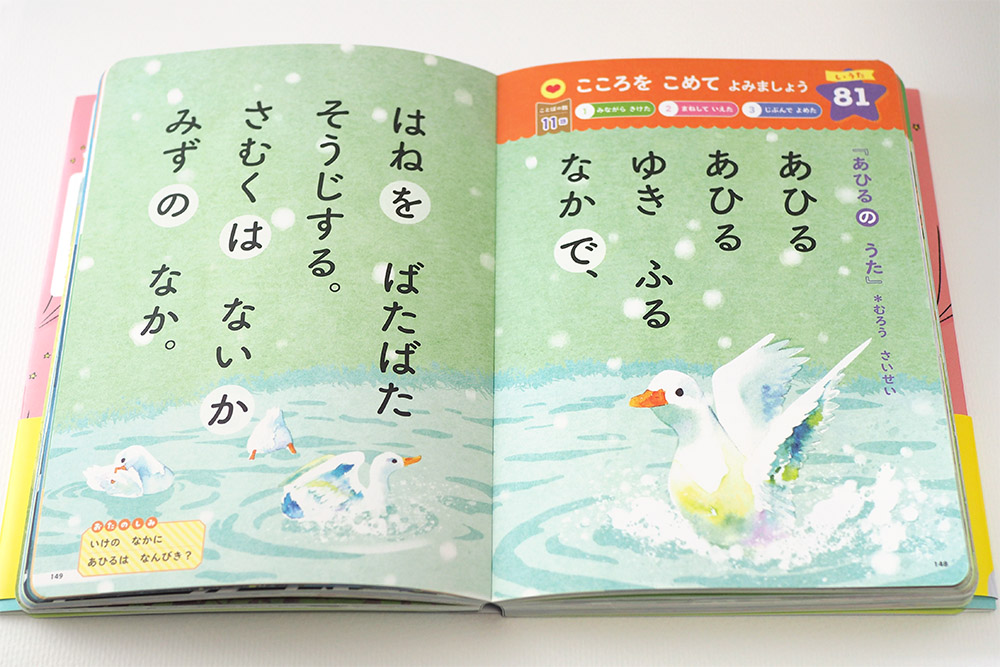 こころを こめて よみましょう
しいうた
81
ことばの数
11語
1 みながら きけた
2 まねして いえた
3 じぶんで よめた
『あひるの うた』 *むろう さいせい
あひる
あひる
ゆき ふる
なかで、
148
はねを ばたばた
そうじする。
さむくは ないか
みずの なか。
おたのしみ
いけの なかに
あひるは なんびき?
149